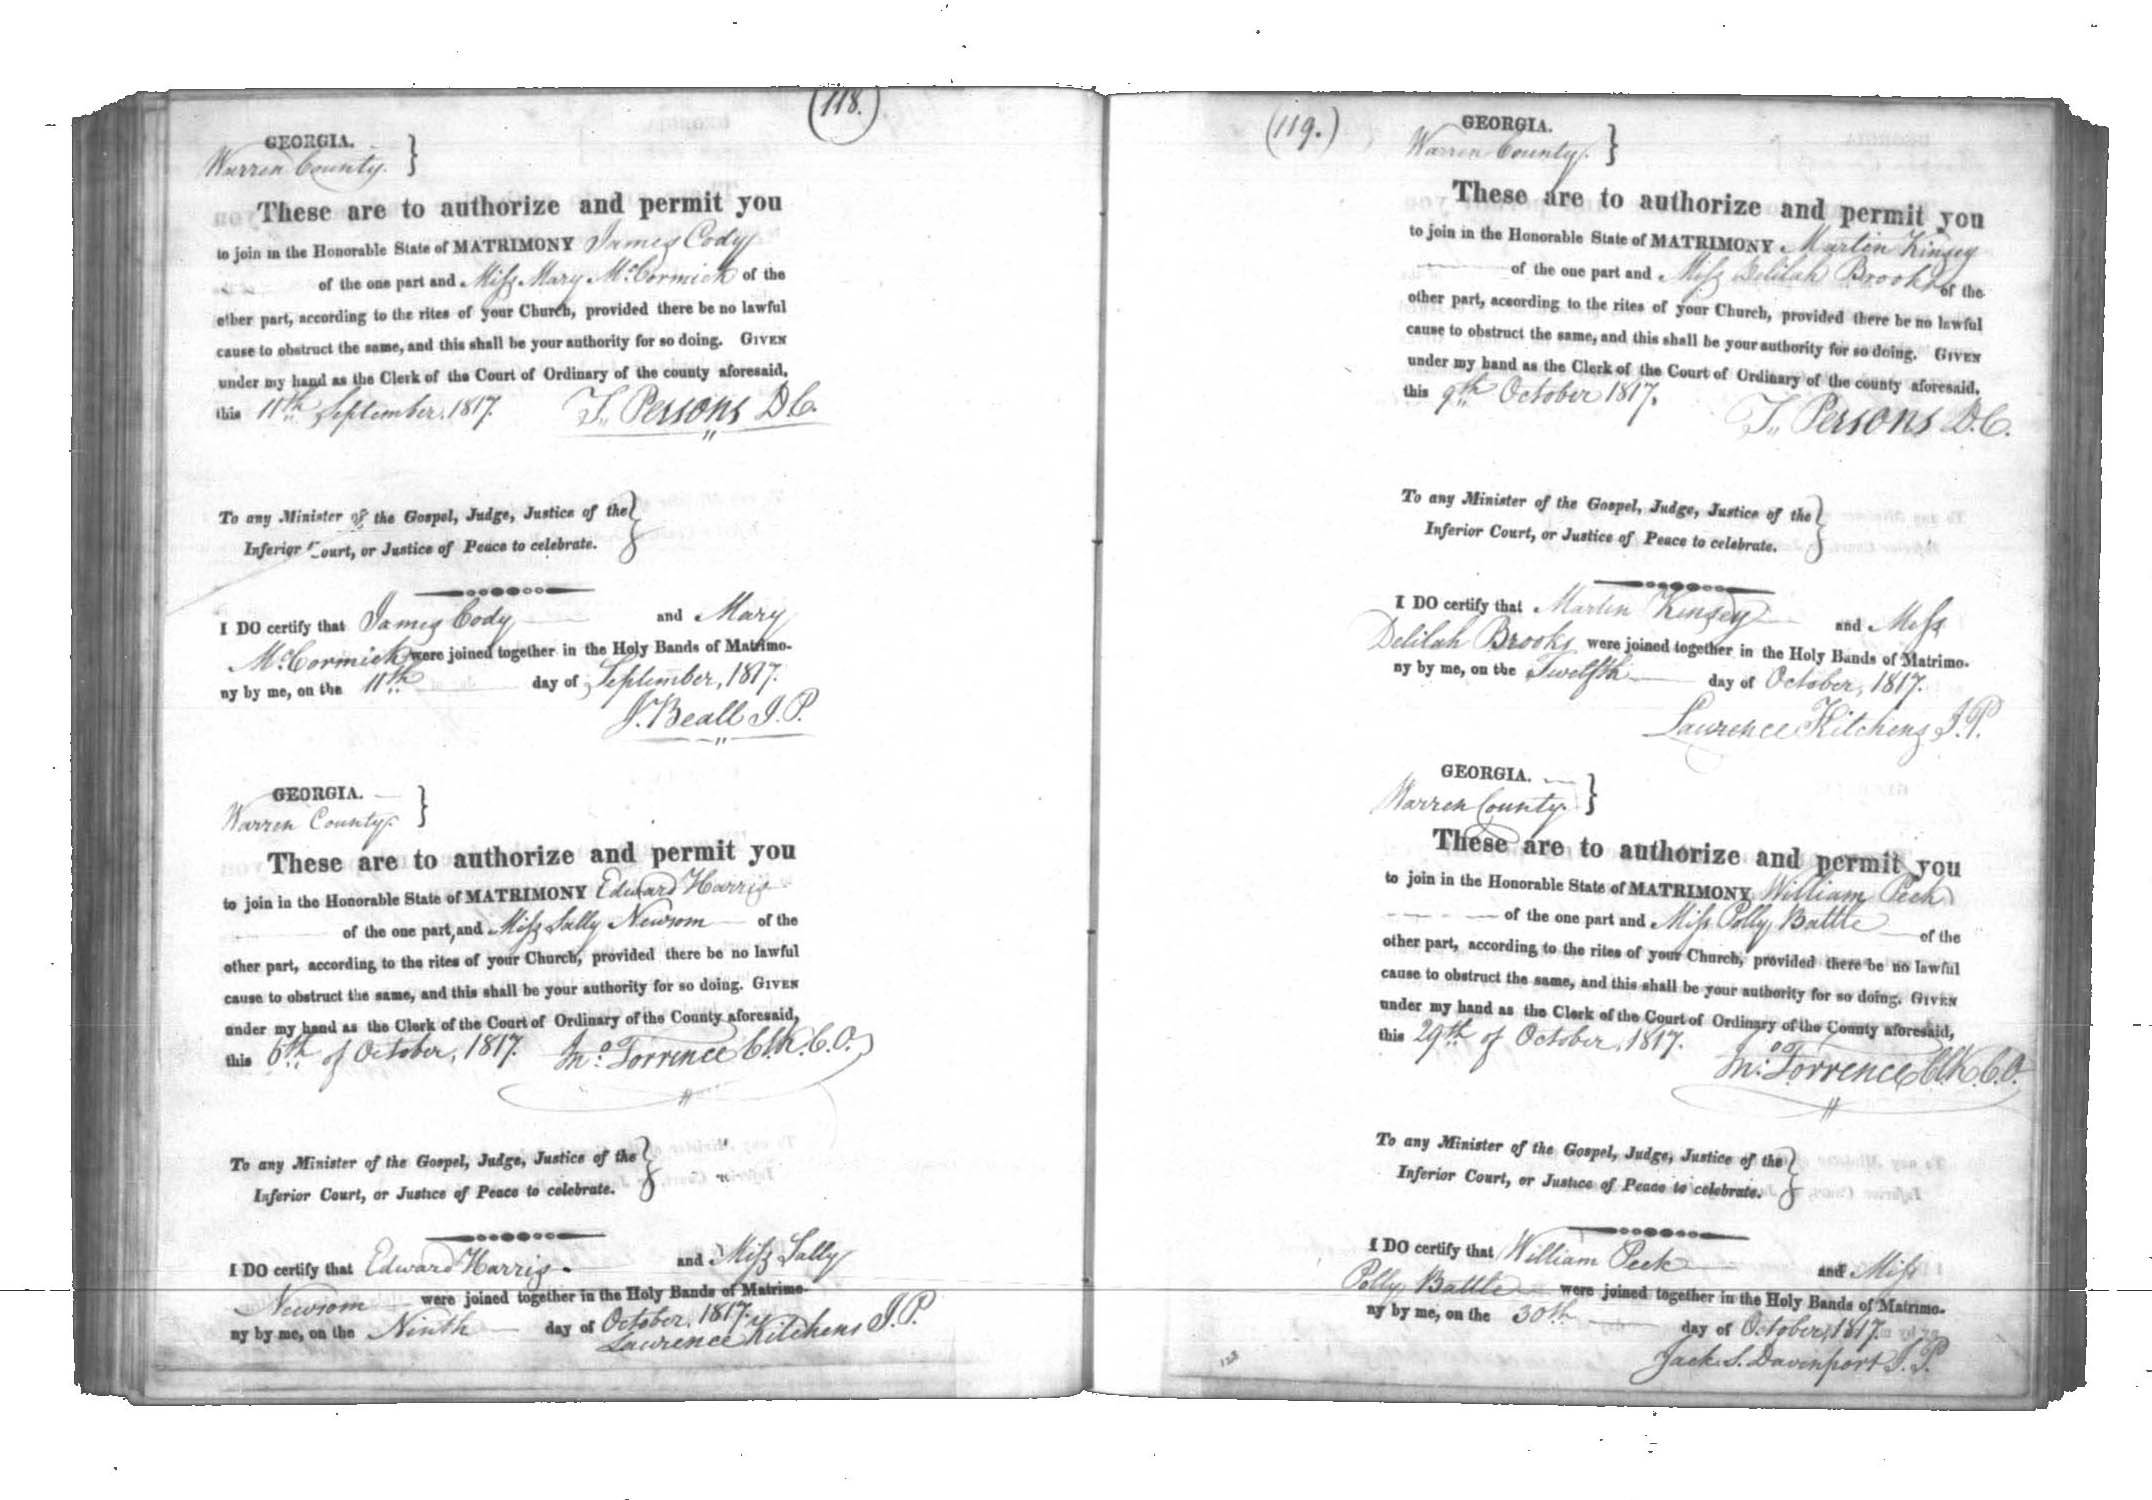 (118.)
GEORGIA.
Warren County. }
These are to authorize and permit you
to join in the Honorable State of MATRIMONY James Cody
of the one part and Miss Mary McCormick of the
other part, according to the rites of your Church, provided there be no lawful
cause to obstruct the same, and this shall be your authority for so doing. GIVEN
under my hand as the Clerk of the Court of Ordinary of the county aforesaid,
this 11th September, 1817. T,, Persons D C.
To any Minister of the Gospel, Judge, Justice of the }
Inferior Court, or Justice of Peace to celebrate.
I DO certify that James Cody and Mary
McCormick were joined together in the Holy Bands of Matrimo-
ny by me, on the 11th day of September, 1817.
J. Beall J. P.
GEORGIA.
Warren County. }
These are to authorize and permit you
to join in the Honorable State of MATRIMONY Edward Harris
of the one part, and Miss Sally Newsom of the
other part, according to the rites of your Church, provided there be no lawful
cause to obstruct the same, and this shall be your authority for so doing. GIVEN
under my hand as the Clerk of the Court of Ordinary of the County aforesaid,
this 6th of October, 1817. Jno. Torrence Clk. C. O.
To any Minister of the Gospel, Judge, Justice of the }
Inferior Court, or Justice of Peace to celebrate.
I DO certify that Edward Harris and Miss Sally
Newsom were joined together in the Holy Bands of Matrimo-
ny by me, on the Ninth day of October, 1817.
Lawrence Kitchens J. P.
(119.)
GEORGIA.
Warren County. }
These are to authorize and permit you
to join in the Honorable State of MATRIMONY Martin Kinsey
of the one part and Miss Delilah Brooks of the
other part, according to the rites of your Church, provided there be no lawful
cause to obstruct the same, and this shall be your authority for so doing. GIVEN
under my hand as the Clerk of the Court of Ordinary of the county aforesaid,
this 9th October 1817. T,, Persons D. C.
To any Minister of the Gospel, Judge, Justice of the }
Inferior Court, or Justice of Peace to celebrate.
I DO certify that Martin Kinsey and Miss
Delilah Brooks were joined together in the Holy Bands of Matrimo-
ny by me, on the Twelfth day of October, 1817.
Lawrence Kitchens J. P.
GEORGIA.
Warren County. }
These are to authorize and permit you
to join in the Honorable State of MATRIMONY William Peek
of the one part and Miss Polly Battle of the
other part, according to the rites of your Church, provided there be no lawful
cause to obstruct the same, and this shall be your authority for so doing. GIVEN
under my hand as the Clerk of the Court of Ordinary of the County aforesaid,
this 29th of October, 1817. Jno. Torrence Clk. C. O.
To any Minister of the Gospel, Judge, Justice of the }
Inferior Court, or Justice of Peace to celebrate.
I DO certify that William Peek and Miss
Polly Battle were joined together in the Holy Bands of Matrimo-
ny by me, on the 30th day of October, 1817.
Jack. S. Davenport J. P.